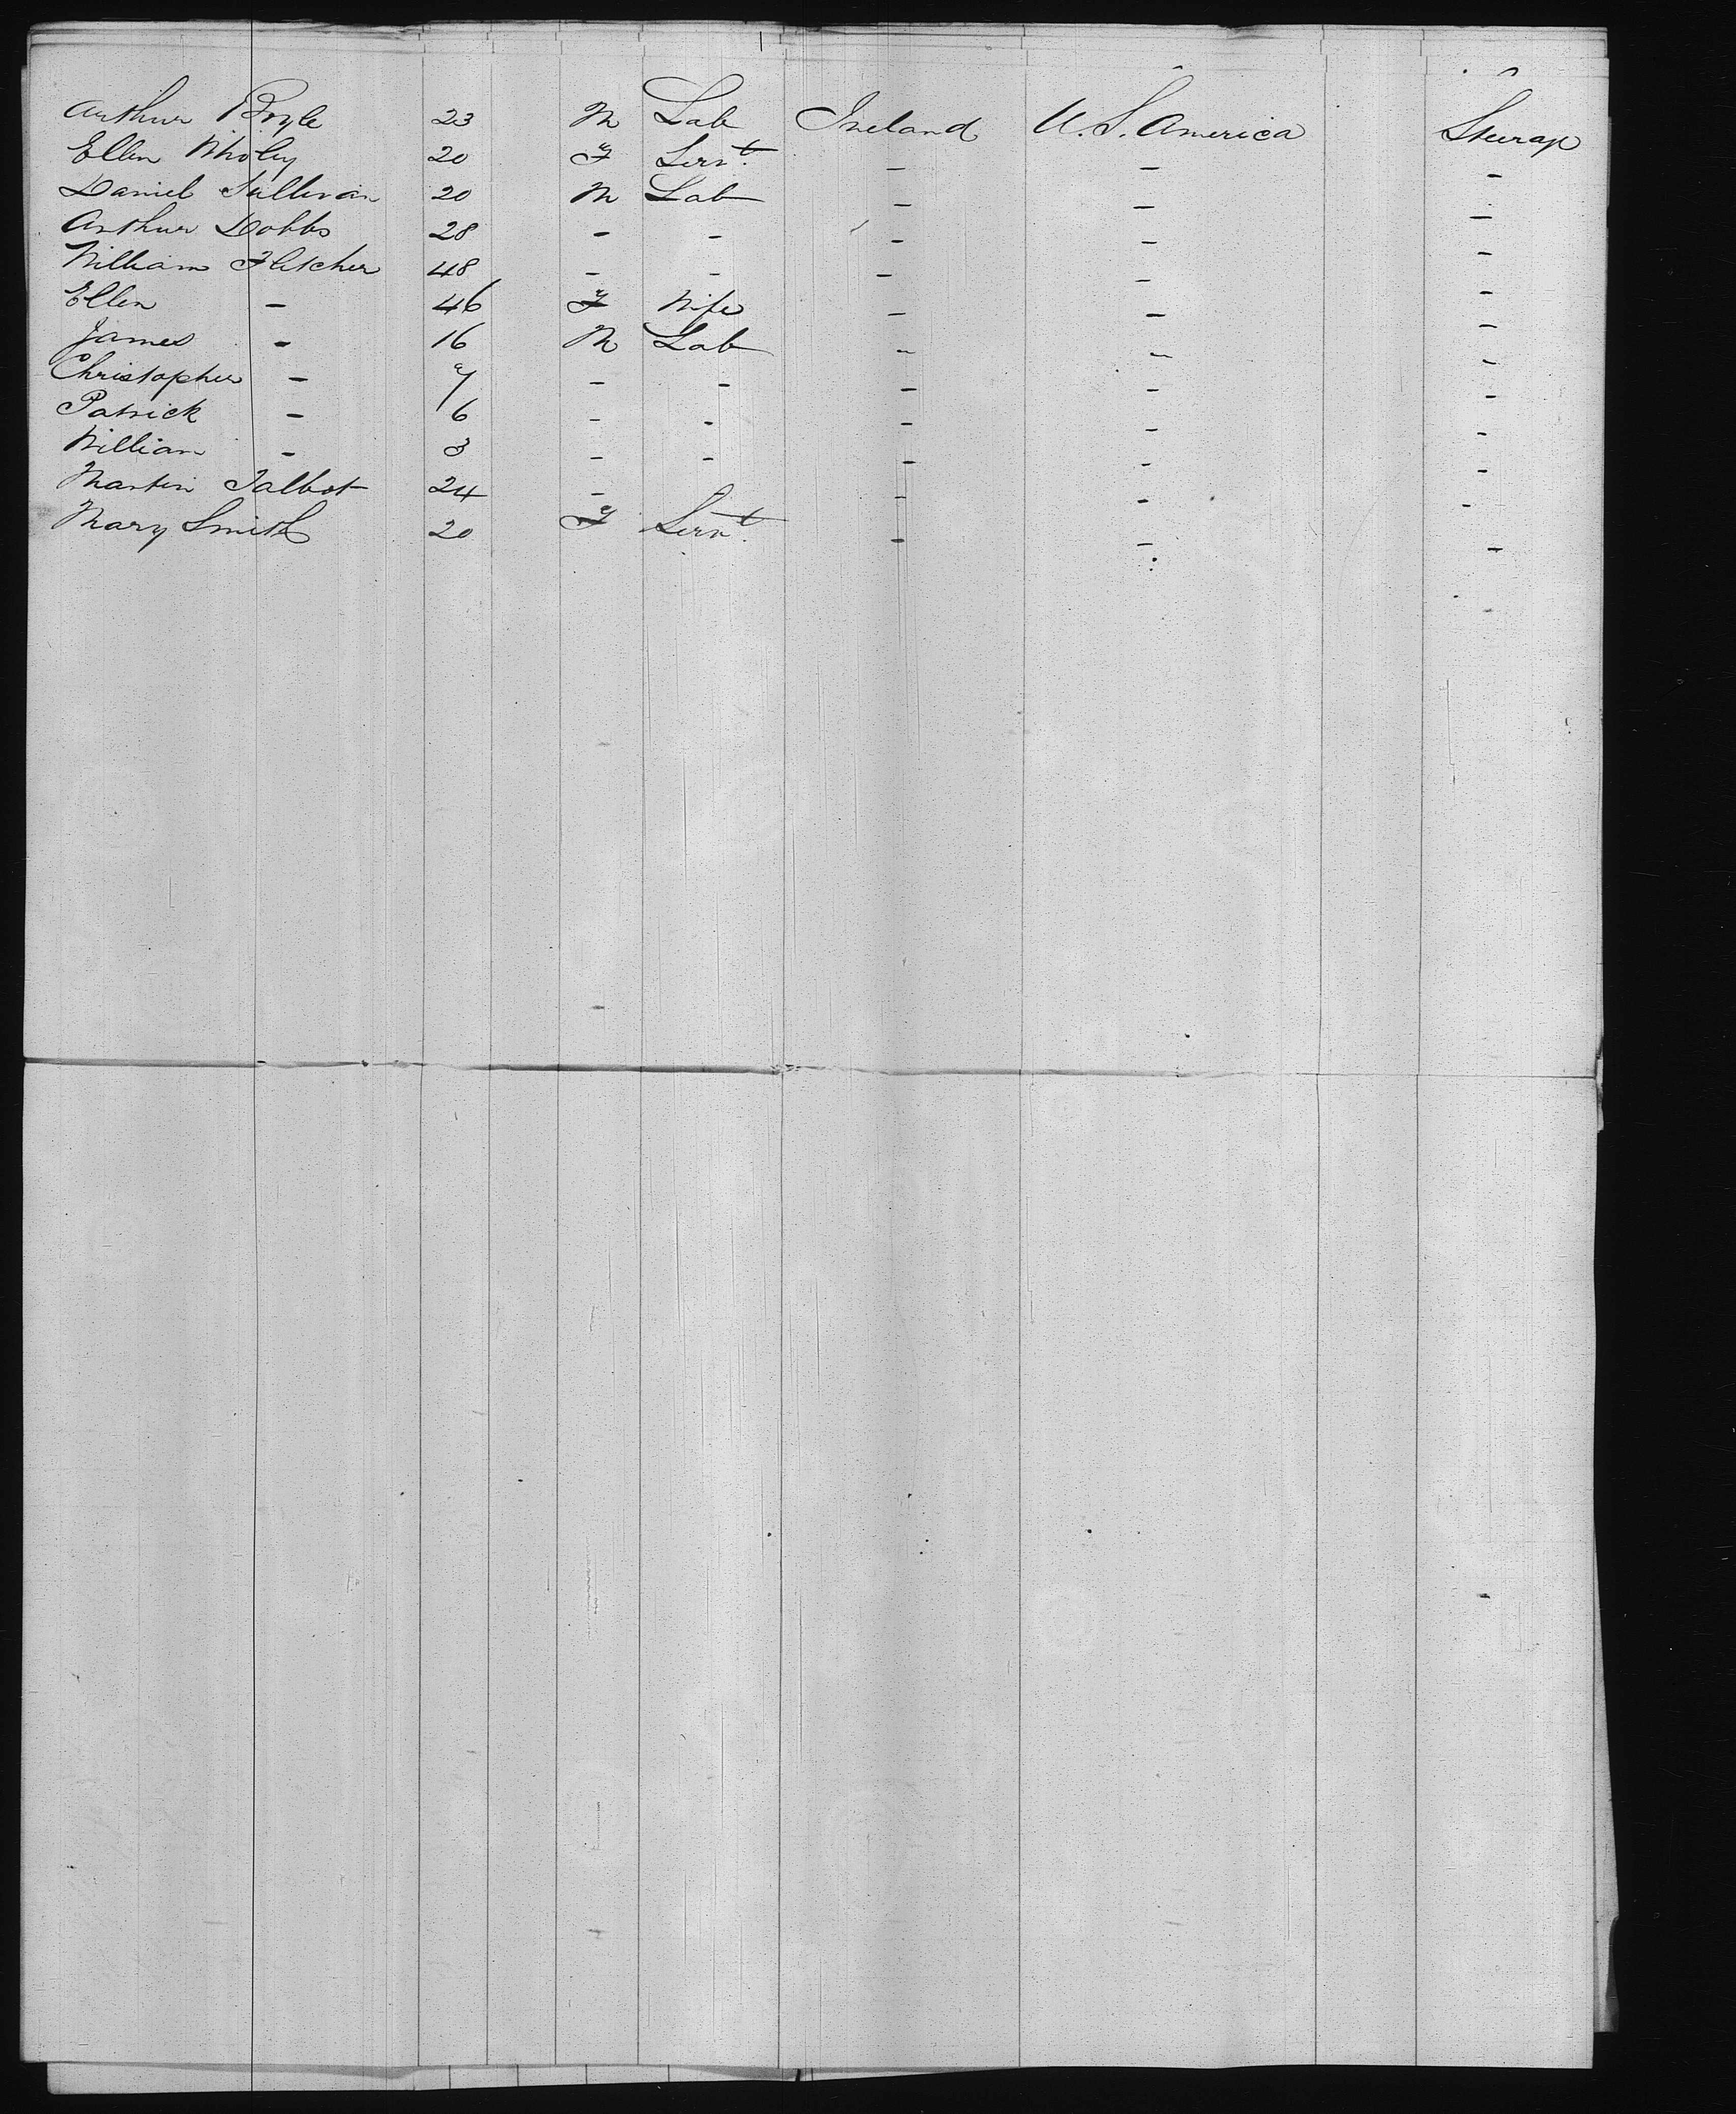 Arthur Boyle 23 M Lab Ireland U.S. America Steerage
Ellen Wholey 20 F Servt. - - -
Daniel Sullivan 20 M Lab - - -
Arthur Dobbs 28 - - - - -
William Fletcher 48 - - - - -
Ellen - 46 F Wife - - -
James - 16 M Lab - - -
Christopher - 7 - - - - -
Patrick - 6 - - - - -
William - 3 - - - - -
Martin Talbot 24 - - - -
Mary Smith 20 F Servt. - - -